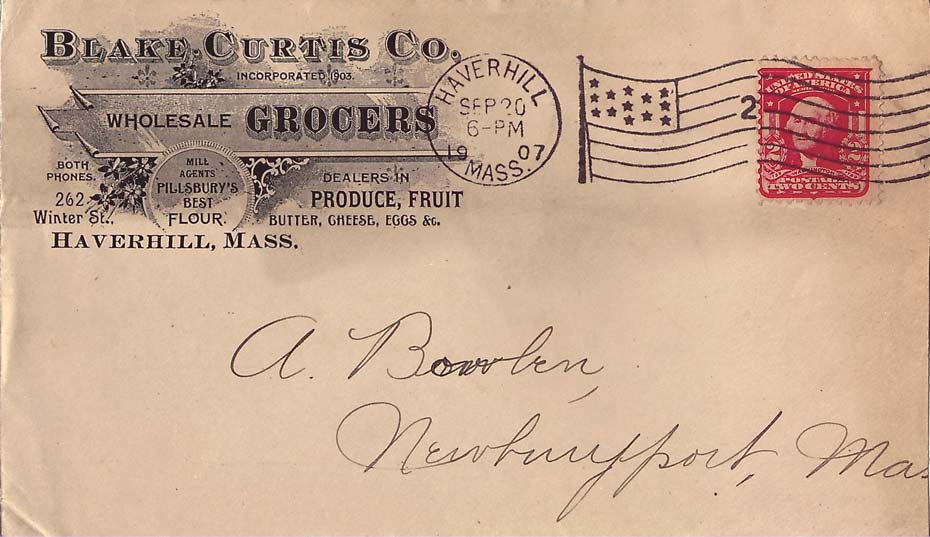 BLAKE-CURTIS CO.
INCORPORATED 1903.
WHOLESALE GROCERS
BOTH
PHONES.
262
Winter St.,
HAVERHILL, MASS.
MILL
AGENTS
PILLSBURY'S
BEST
FLOUR.
DEALERS IN
PRODUCE, FRUIT
BUTTER, CHEESE, EGGS &c.
HAVERHILL
SEP 20
6-PM
1907
MASS.
2
UNITED STATES
OF AMERICA
2 2
POSTAGE
TWO CENTS
A. Bowlen,
Newburyport, Ma